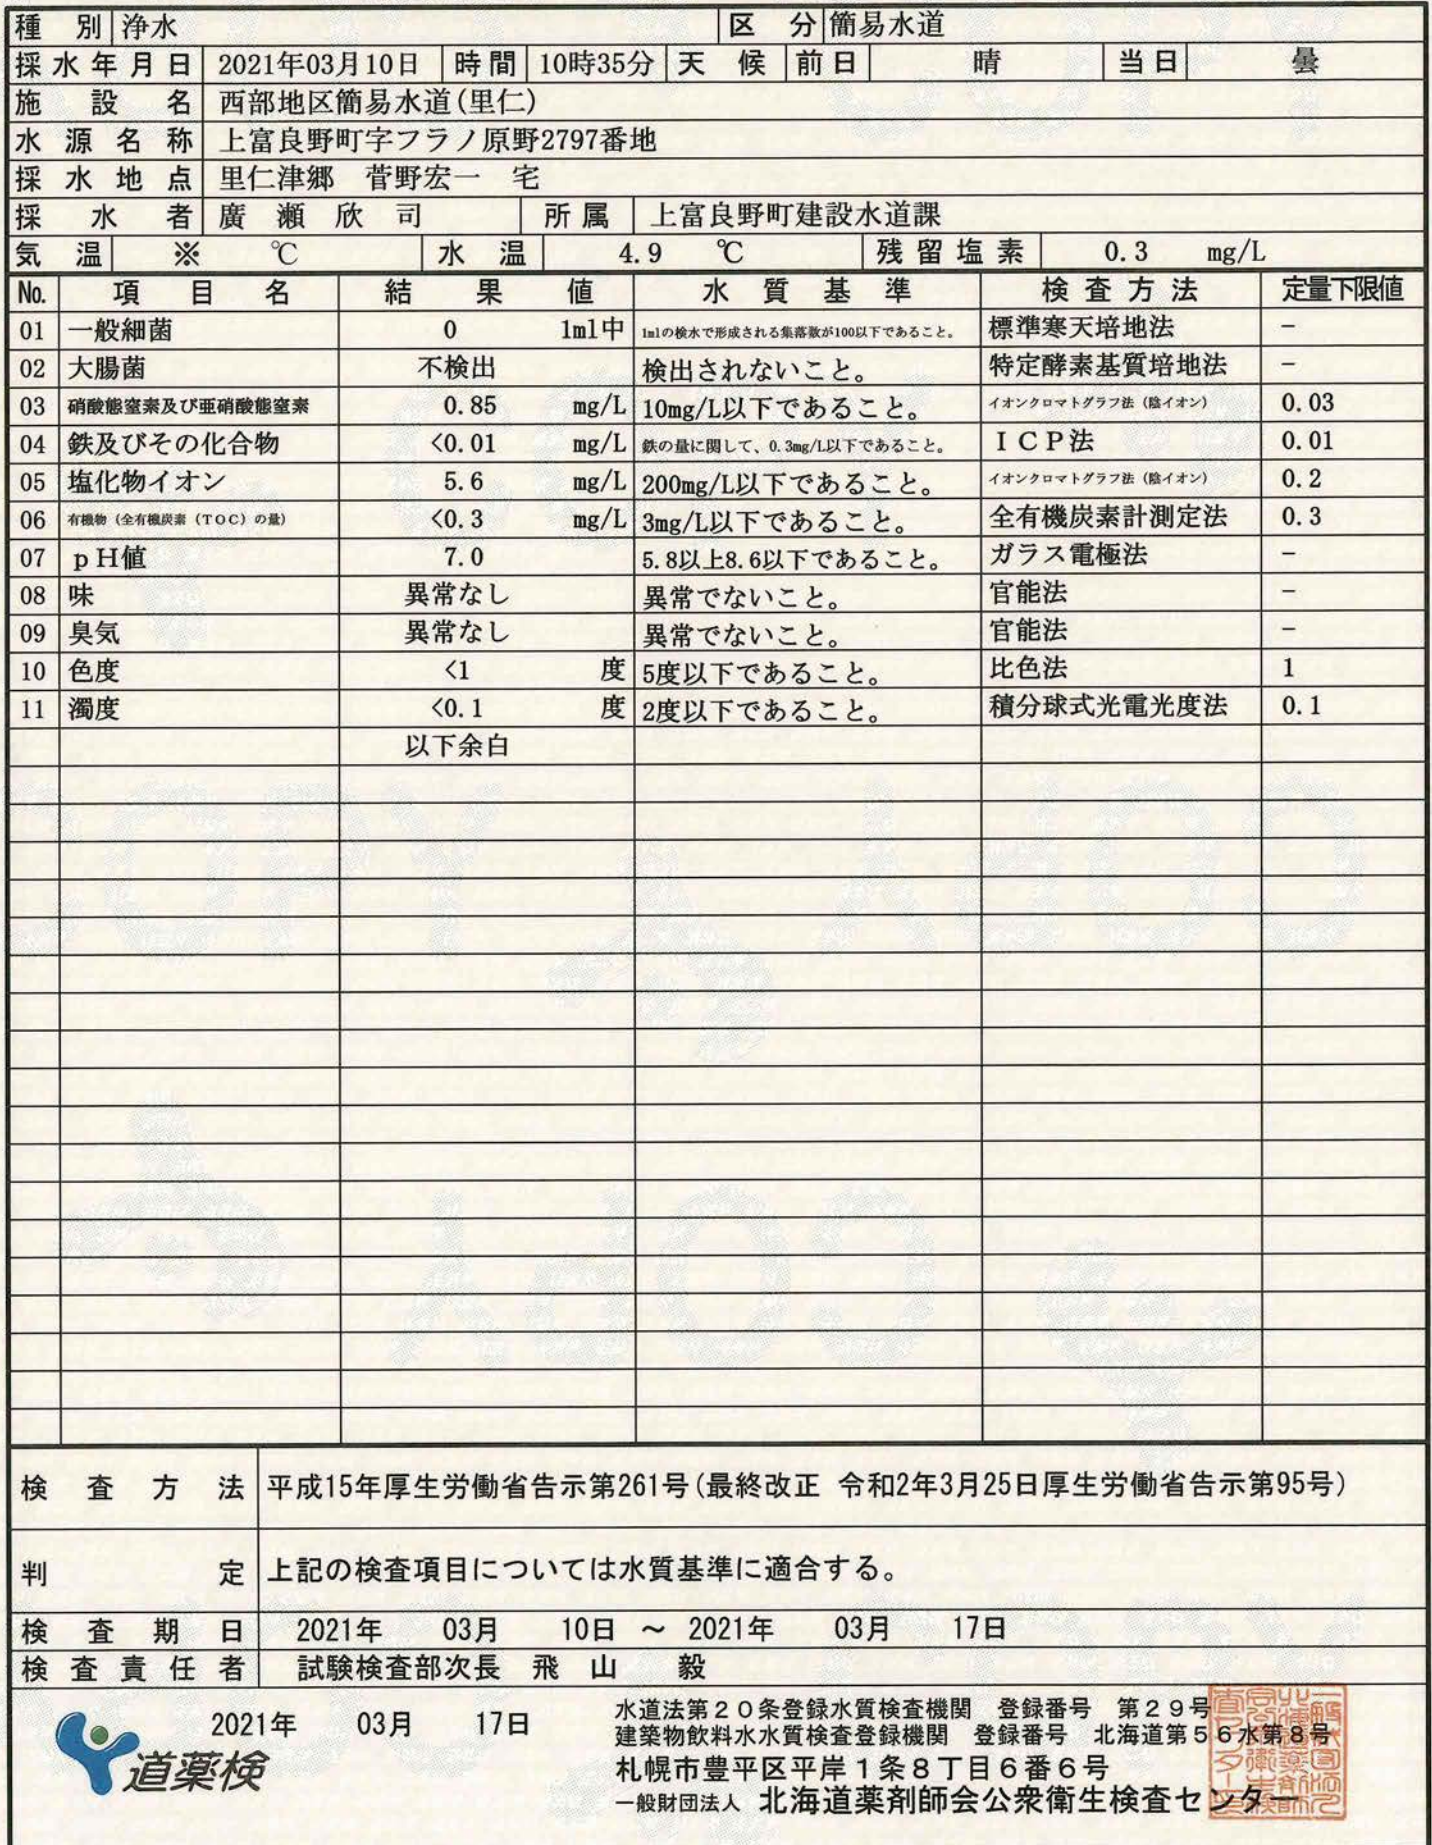 種別 浄水 区分 簡易水道
採水年月日 2021年03月10日 時間 10時35分 天候 前日 晴 当日 曇
施設名 西部地区簡易水道(里仁)
水源名称 上富良野町字フラノ原野2797番地
採水地点 里仁津郷 菅野宏一 宅
採水者 廣瀬欣司 所属 上富良野町建設水道課
気温 ※ ℃ 水温 4.9 ℃ 残留塩素 0.3 mg/L
No. 項目名 結果値 水質基準 検査方法 定量下限値
01 一般細菌 0 1ml中 1mlの検水で形成される集落数が100以下であること。 標準寒天培地法 -
02 大腸菌 不検出 検出されないこと。 特定酵素基質培地法 -
03 硝酸態窒素及び亜硝酸態窒素 0.85 mg/L 10mg/L以下であること。 イオンクロマトグラフ法(陰イオン) 0.03
04 鉄及びその化合物 <0.01 mg/L 鉄の量に関して、0.3mg/L以下であること。 ICP法 0.01
05 塩化物イオン 5.6 mg/L 200mg/L以下であること。 イオンクロマトグラフ法(陰イオン) 0.2
06 有機物(全有機炭素(TOC)の量) <0.3 mg/L 3mg/L以下であること。 全有機炭素計測定法 0.3
07 pH値 7.0 5.8以上8.6以下であること。 ガラス電極法 -
08 味 異常なし 異常でないこと。 官能法 -
09 臭気 異常なし 異常でないこと。 官能法 -
10 色度 <1 度 5度以下であること。 比色法 1
11 濁度 <0.1 度 2度以下であること。 積分球式光電光度法 0.1
以下余白
検査方法 平成15年厚生労働省告示第261号(最終改正 令和2年3月25日厚生労働省告示第95号)
判定 上記の検査項目については水質基準に適合する。
検査期日 2021年 03月 10日 ～ 2021年 03月 17日
検査責任者 試験検査部次長 飛山 毅
2021年 03月 17日
道薬検
水道法第20条登録水質検査機関 登録番号 第29号
建築物飲料水水質検査登録機関 登録番号 北海道第56水第8号
札幌市豊平区平岸1条8丁目6番6号
一般財団法人 北海道薬剤師会公衆衛生検査センター